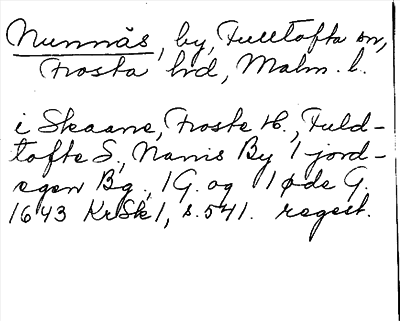 Nunnäs, by, Fulltofta sn,
Frosta hd, Malm. l.
i Skaane, Froste H., Fuld-
tofte S., Nannis By 1 jord-
egen Bg., 1 G. og 1 øde G.
1643 KrSk 1, s. 541. regest.